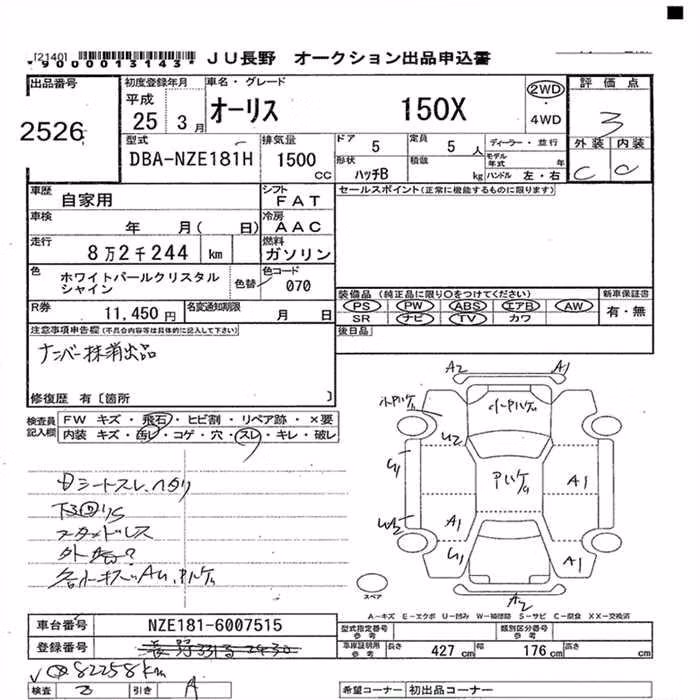 [2140]
*9000013143* JU長野 オークション出品申込書
出品番号 初度登録年月 車名・グレード 評価点
2526 平成 25 3月 オーリス 150X 2WD・4WD 3
型式 排気量 ドア 定員 ディーラー・並行 外装 内装
DBA-NZE181H 1500cc 5 5人 モデル年式 年 C C
形状 ハッチB 積載 kg ハンドル 左・右
車歴 自家用 シフト FAT セールスポイント(正常に機能するものに限ります)
車検 年 月( 日) 冷房 AAC
走行 8万2千244 km 燃料 ガソリン
色 ホワイトパールクリスタルシャイン 色替 色コード 070
装備品(純正品に限り○をつけてください) 新車保証書
R券 11,450円 名変通知期限 月 日 PS PW ABS エアB AW 有・無
SR ナビ TV カワ
注意事項申告欄(不具合内容等は具体的に記入して下さい) 後日品
ナンバー抹消出品
修復歴 有〔箇所 〕
検査員記入欄 FW キズ・飛石・ヒビ割・リペア跡・×要
内装 キズ・汚レ・コゲ・穴・スレ・キレ・破レ
A2 A1
小PリケA 小PリケA
U2
U1 PリケA A1
A1
U1 A1
A2
シートスレ、ヘタリ
スタメドレス
スペア
A-キズ E-エクボ U-凹み W-補修跡 S-サビ C-腐食 XX-交換済
車台番号 NZE181-6007515 型式指定番号 参考 類別区分番号 参考
登録番号 車庫証明用 参考 長さ 427cm 幅 176cm 高さ cm
82258km
検査 3 引き A 希望コーナー 初出品コーナー